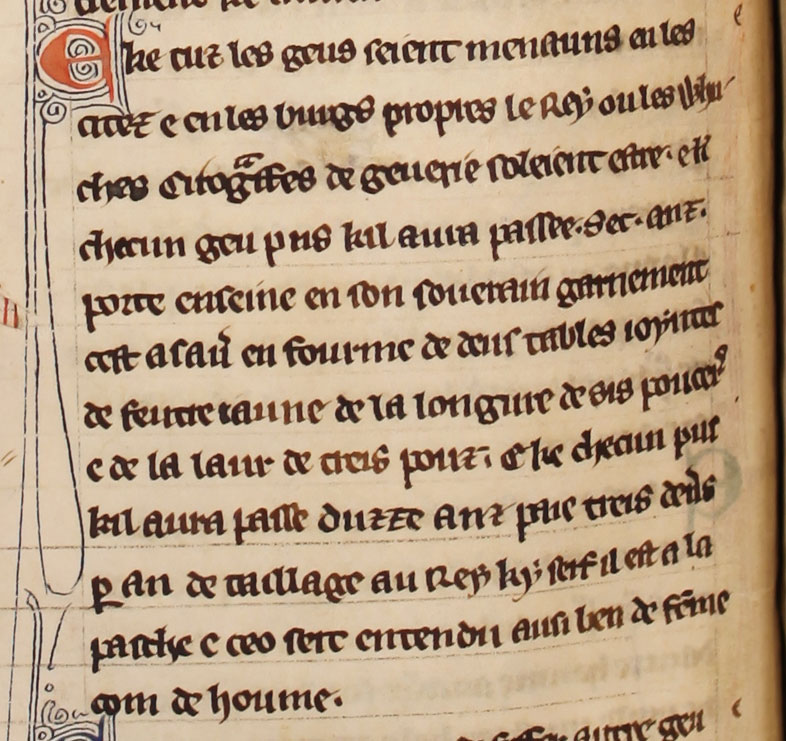 E ke tuz les geus seient menauns en les
citez e en les burgs propres le Rey ou les Whu
ches Cirogͣffes de geuerie soleient estre. e ke
checun geu pus kil aura passee. Set. anz.
porte enseine en son souerain garnement
cest a sauͬ en fourme de deus tables ioyntes
de feutre iaune de la longure de sis poucesꝰ
e de la laur de treis pouz. E ke checun pus
kil aura passe duzze anz paie treis deners
ꝑ an de taillage au Rey ky serf il est a la
pasche e ceo seit entendu ausi ben de fēme
com de houme.
autre geu